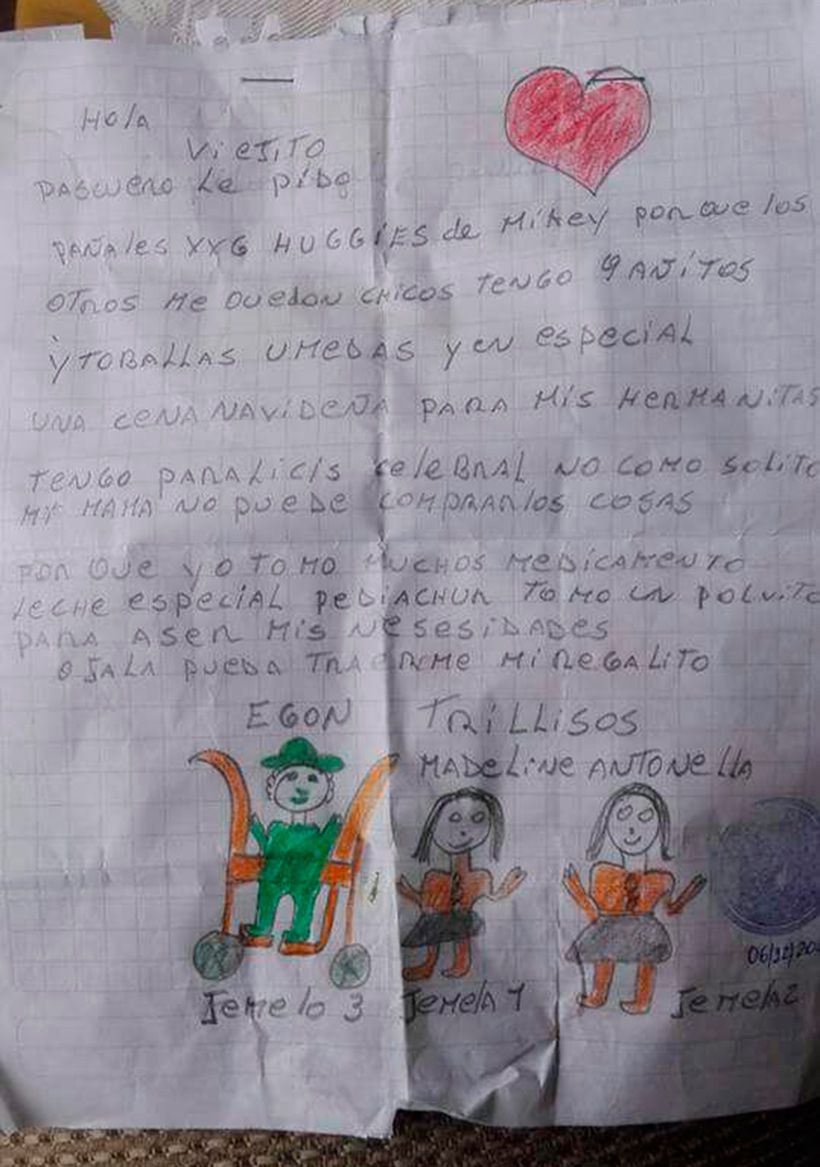 HOlA
ViEJITO
PASCUERO Le pido
PAÑAles XXG HUGGIES de Mikey ponque los
OTnos Me Quedan cHicos TENGO 9 AÑITOS
y TOBALLAS UMEDAS y en especiAL
UNA ceNA NAVideÑA PARA Mis HeRMANiTAS
TENGO PARALICIS CeleBRAL NO COMO SOLITO
Mi MAMA NO pueDe COMPRARlos COSAS
POR QUe YO TOMO MUCHOS MeDICAMENTO
LeCHe especiAL PeDIACHUR TOMO UN POLVITO
PARA ASeR MIS NeSeSIDADeS
OJALA PUeDA TRAeRMe Mi ReGALITO
EGON TRiLLiSOS
MADeLiNe ANTONella
Jemelo 3 Jemela 1 Jemela 2
06/12/20